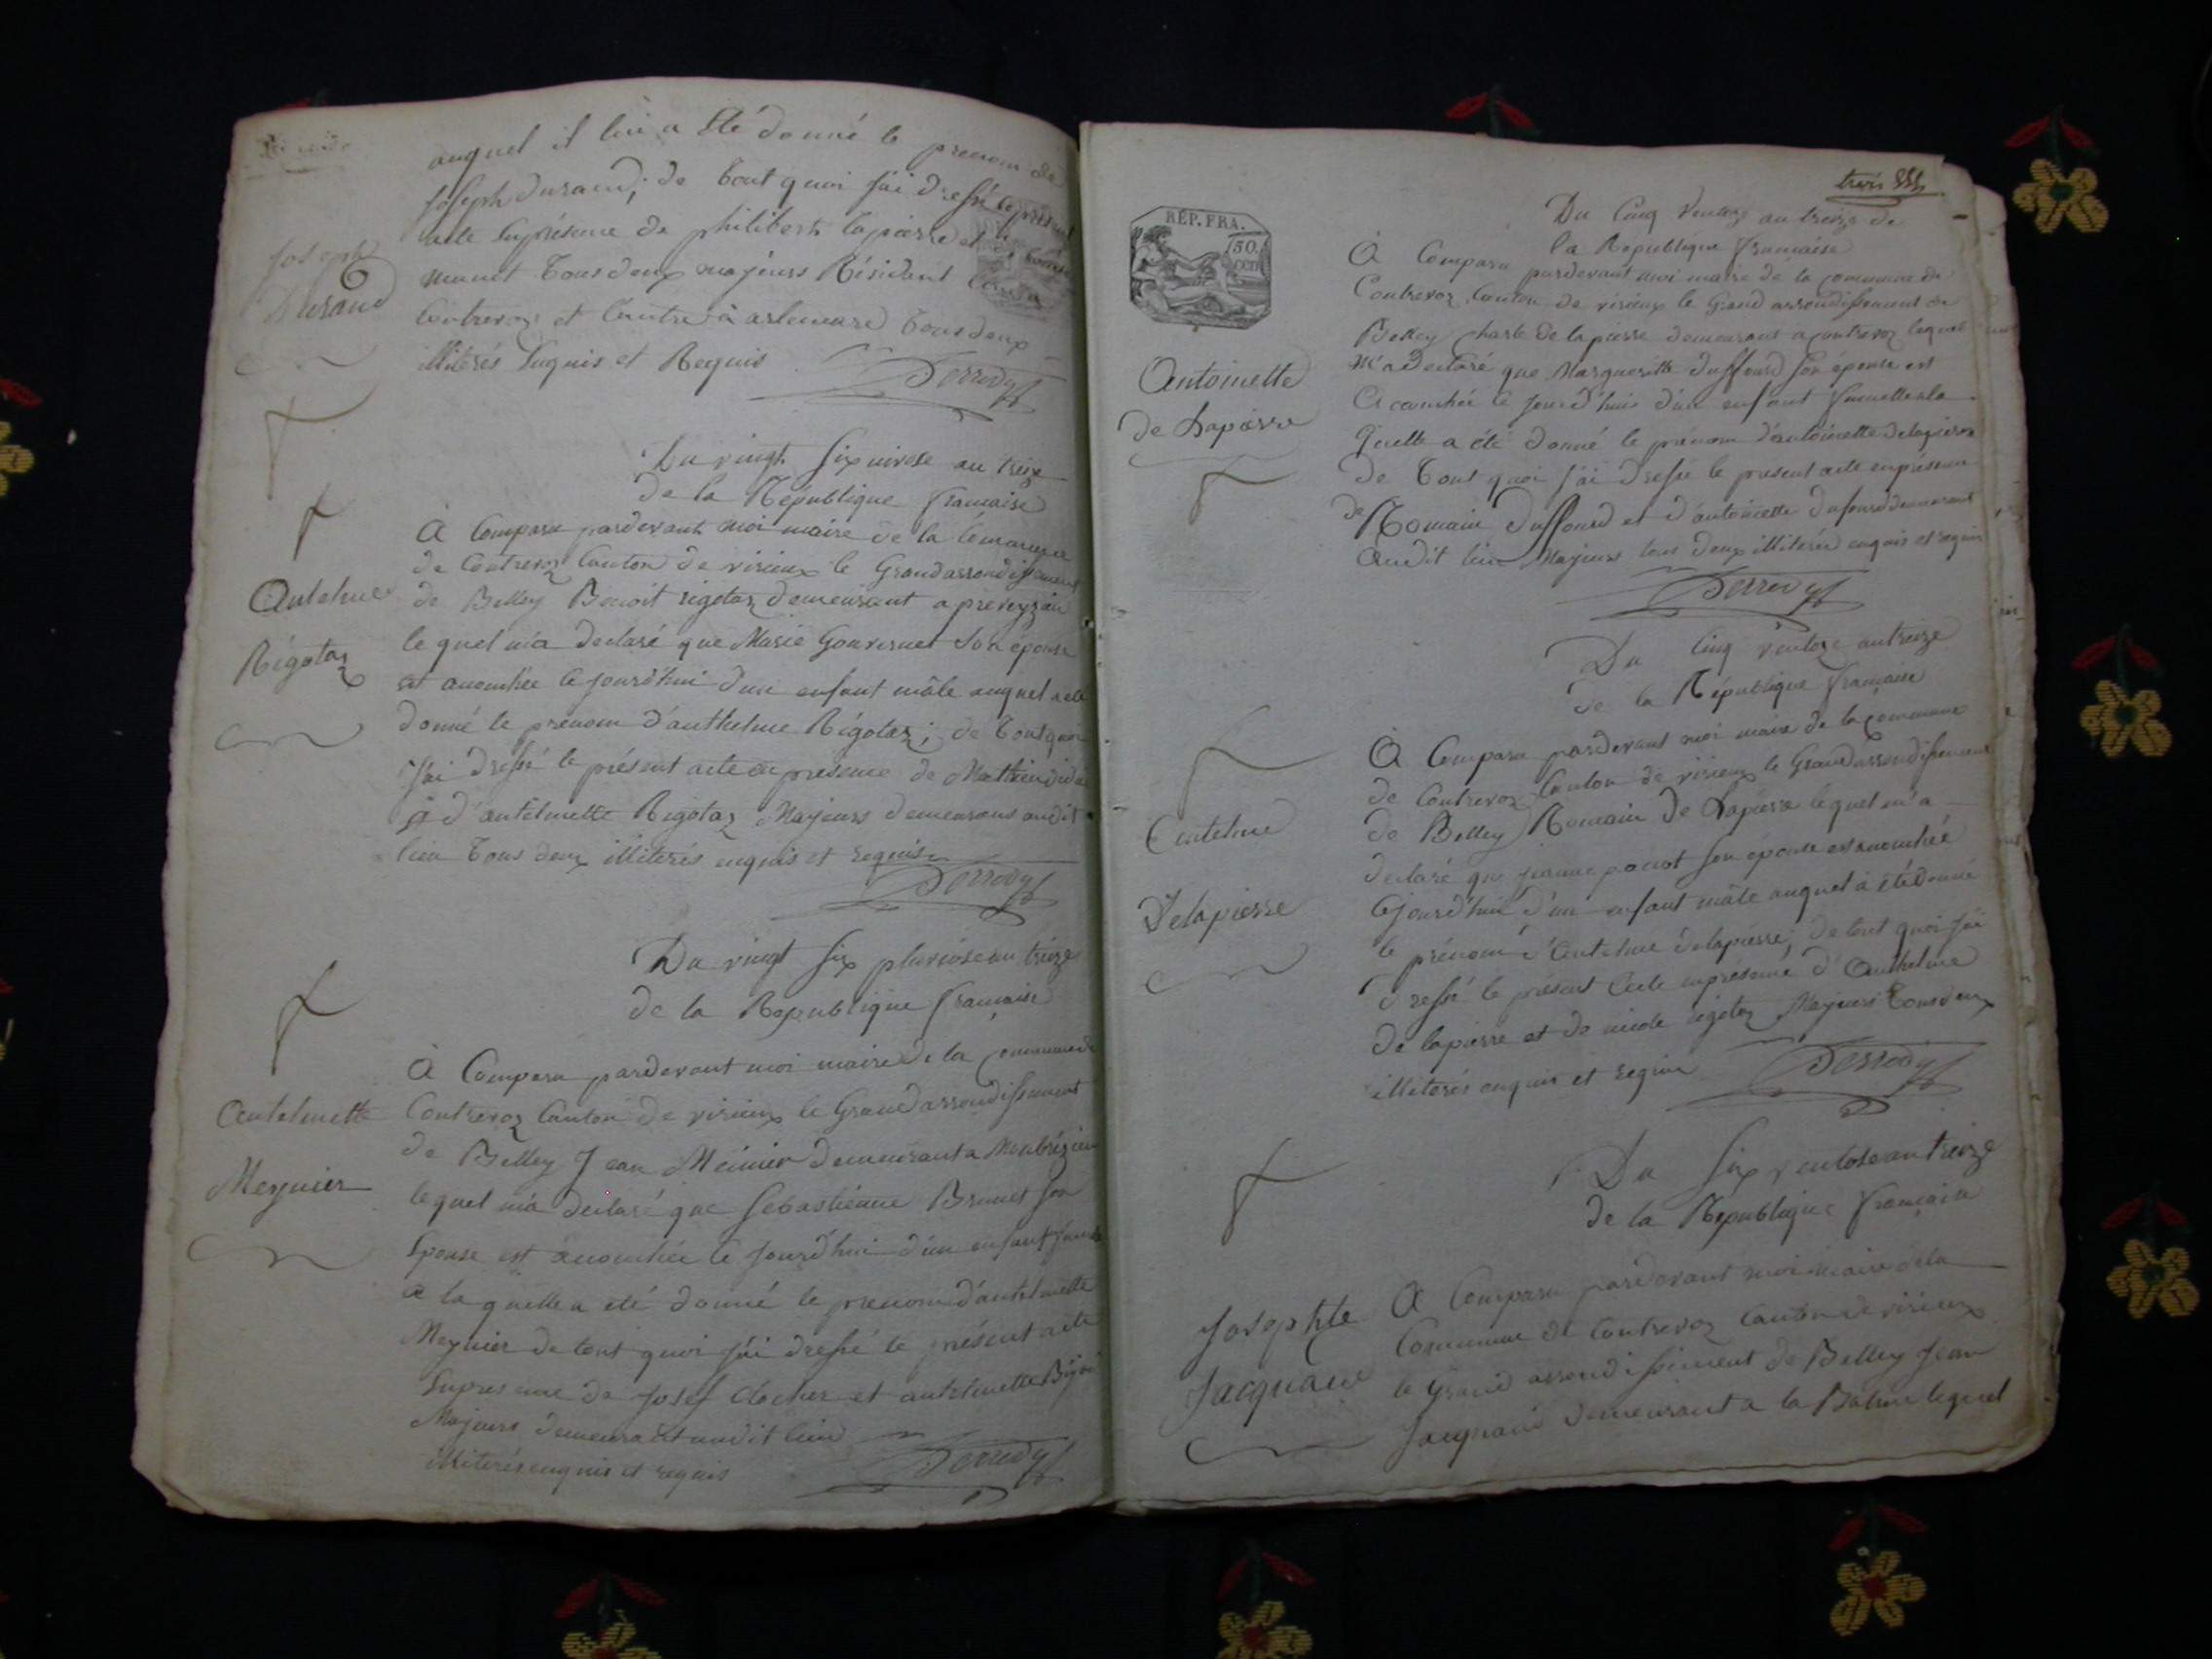 auquel il lui a Eté donné le prenom de
Joseph durand; de tout quoi j'ai dressé le présent
acte En présence de philibert lapierre et
munet tous deux majeurs Résidant
Contrevoz et l'autre à tous deux
illiterés Enquis et Requis
Perrody
Joseph
Durand
Du vingt six nivose an treize
de la République française
A Comparu pardevant moi maire de la Commune
de Contrevoz Canton de virieux le Grand arrondissement
de Belley Benoit rigotaz demeurant a preveyzieu
le quel m'a declaré que Marie Gouvernet son épouse
est accouchée ce jourd'hui d'un enfant mâle auquel a été
donné le prenom d'anthelme Rigotaz; de tout quoi
j'ai dressé le présent acte en presence de Matthieu
d'antelmette Rigotaz Majeurs demeurans audit
lieu tous deux illiterés enquis et requis
Perrody
Antelme
Rigotaz
Du vingt six pluviose an treize
de la Republique française
A Comparu pardevant moi maire de la commune de
Contrevoz Canton de virieux le Grand arrondissement
de Belley Jean Meinier demeurant a Montbrézieu
lequel m'a declaré que Sebastienne Brunet son
Epouse est accouchée ce jourd'hui d'un enfant
a la quelle a été donné le prenom d'antelmette
Meynier de tout quoi j'ai dressé le présent acte
En presence de Josef clocher et antelmette
Majeurs demeurant audit lieu
illiterés enquis et requis
Perrody
Antelmette
Meynier
trois
REP. FRA.
50.
CEN
Du Cinq Ventoze an treize de
la Republique française
A Comparu pardevant moi maire de la commune de
Contrevoz Canton de virieux le Grand arrondissement de
Belley Charle de lapierre demeurant a contrevoz lequel
m'a declaré que Margueritte duffourd son épouse est
accouchée ce jourd'hui d'un enfant fumelle a la
quelle a été donné le prénom d'antoinette delapierre
de tout quoi j'ai dressé le present acte en présence
de Romain Duffourd et d'antoinette dufourd demeurant
audit lieu Majeurs tous deux illiterés enquis et requis
Perrody
Antoinette
de Lapierre
Du Cinq ventoze an treize
de la République française
A Comparu pardevant moi maire de la commune
de Contrevoz Canton de virieux le Grand arrondissement
de Belley Romain De Lapierre lequel m'a
declaré que jeanne son épouse est accouchée
cejourd'hui d'un enfant mâle auquel à été donné
le prénom d'Antelme delapierre; de tout quoi j'ai
dressé le présent acte en présence d'Anthelme
de lapierre et de rigotaz Majeurs tous deux
illiterés enquis et requis
Perrody
Antelme
Delapierre
Du six ventose an treize
de la République française
A Comparu pardevant moi maire de la
Commune de Contrevoz Canton de virieux
le Grand arrondissement de Belley Jean
Jacquand demeurant a la Balme lequel
Josephte
Jacquand